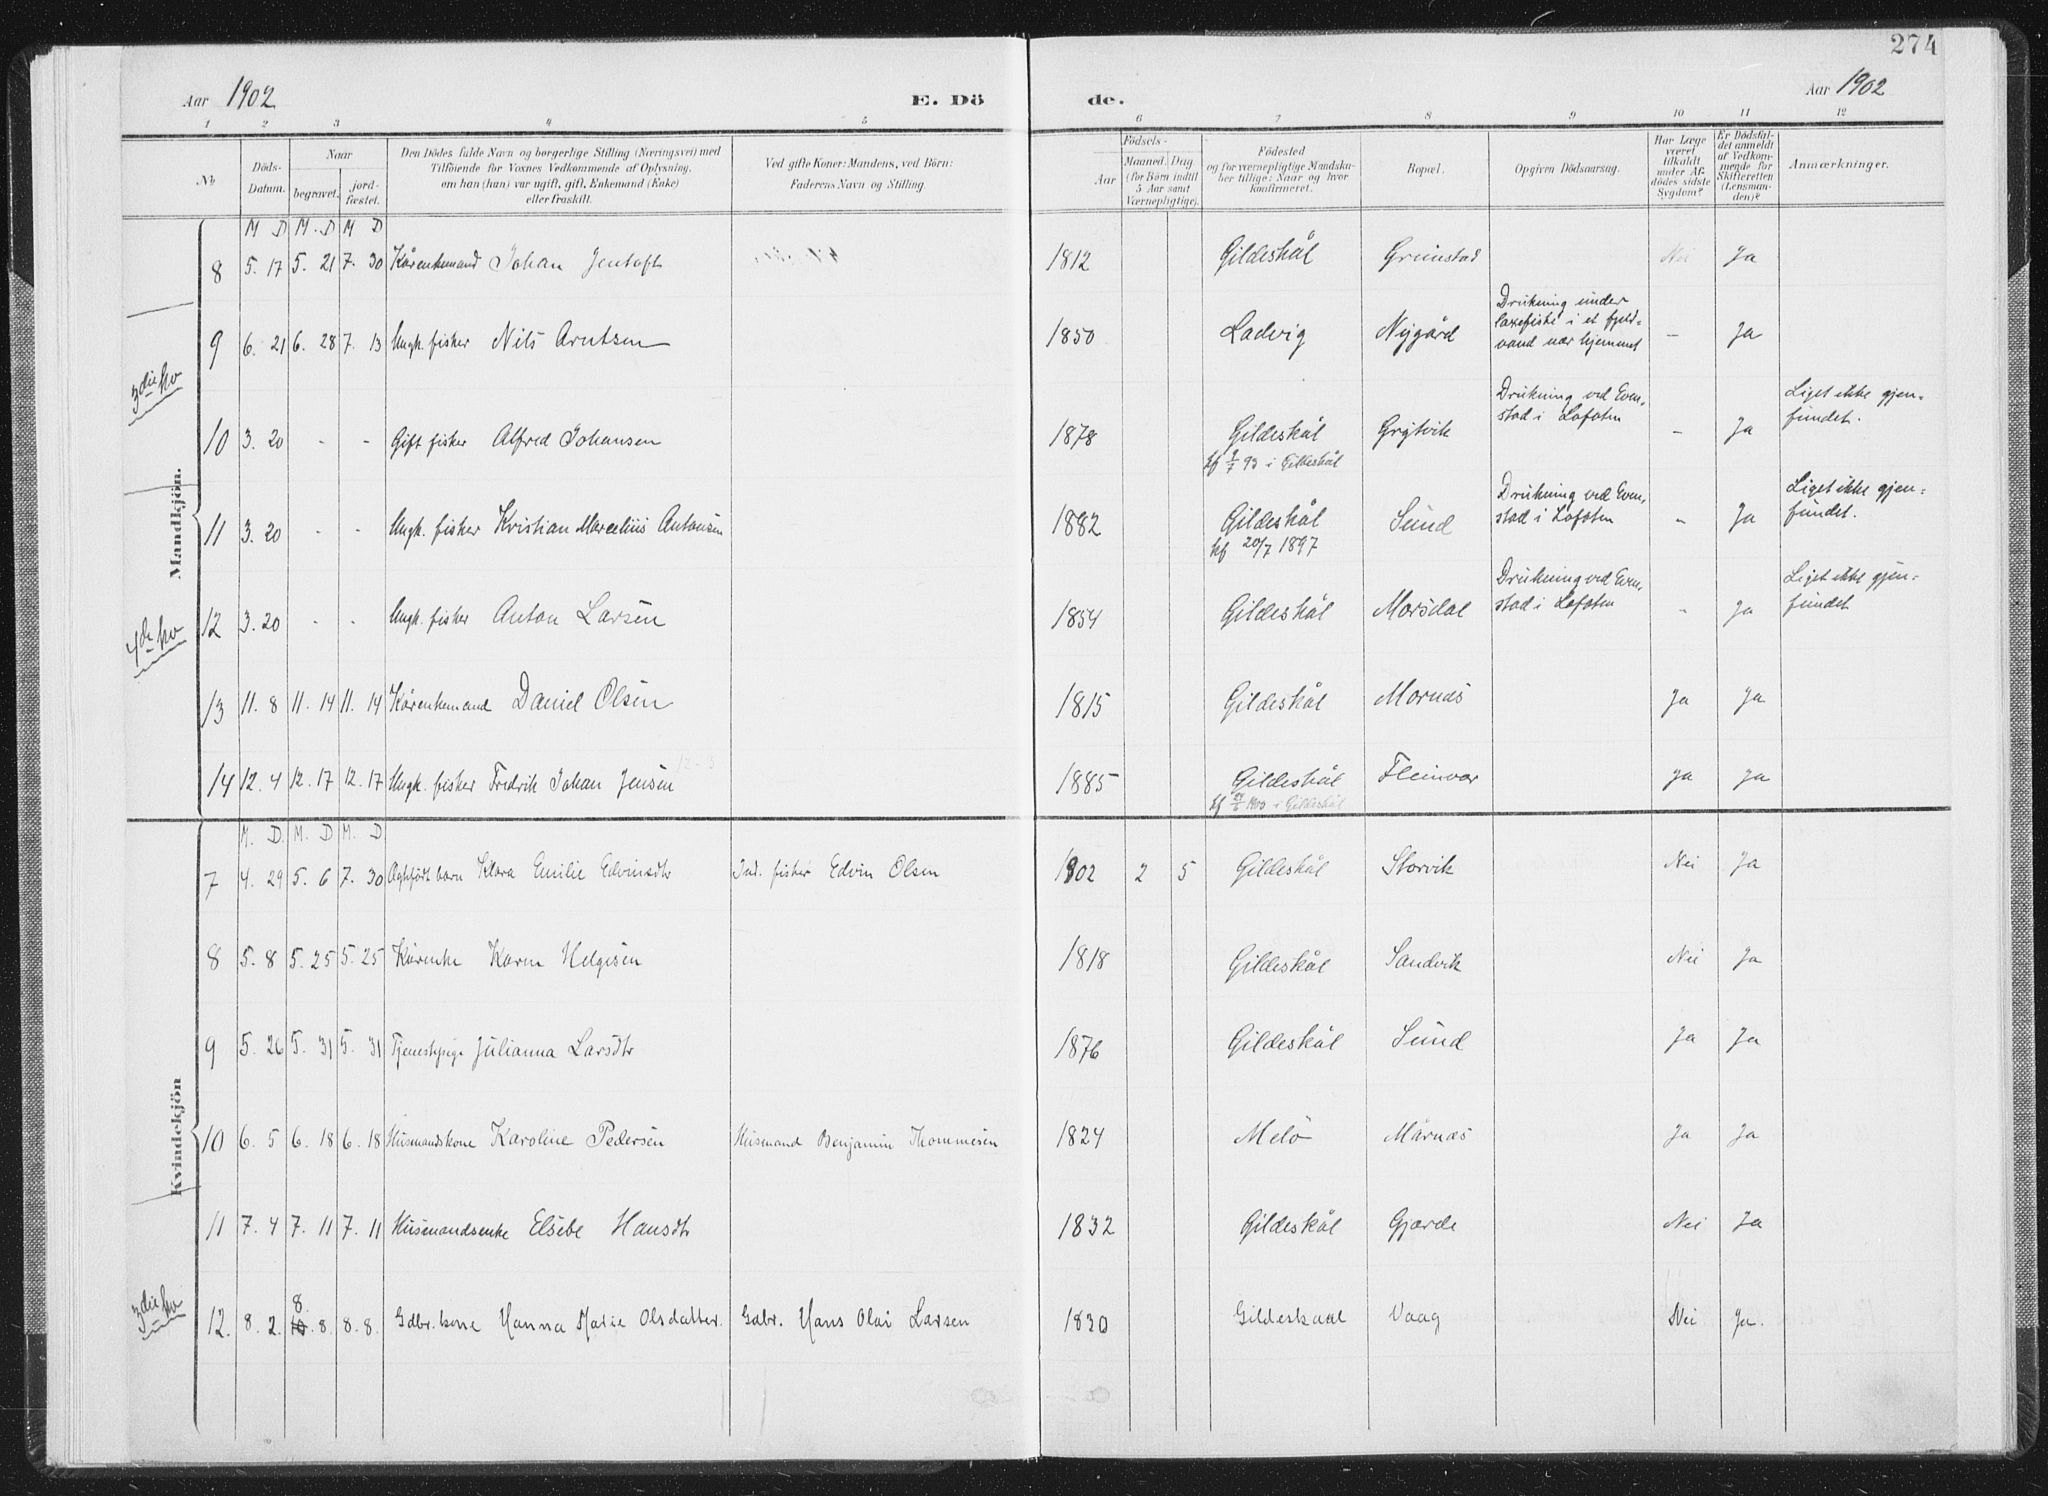 274
Aar 1902 E. Dö de. Aar 1902
1 2 3 4 5 6 7 8 9 10 11 12
№
Döds-Datum.
Naar
begravet.
jord-fæstet.
Den Dödes fulde Navn og borgerlige Stilling (Næringsvei) med
Tilföiende for Voxnes Vedkommende af Oplysning,
om han (hun) var ugift, gift, Enkemand (Enke)
eller fraskilt.
Ved gifte Koner: Mandens, ved Börn:
Faderens Navn og Stilling.
Födsels-
Aar
Maaned. Dag
(for Börn indtil
5 Aar samt
Værnepligtige).
Födested
og for værnepligtige Mandska-
ber tillige: Naar og hvor
konfirmeret.
Bopæl.
Opgiven Dödsaarsag.
Har Læge
været
tilkaldt
under Af-
dödes sidste
Sygdom?
Er Dödsfal-
det anmeldt
af Vedkom-
mende for
Skifteretten
(Lensman-
den)?
Anmærkninger.
Mandkjön.
M D M. D M D
8 5. 17 5. 21 7. 30 Kårenkemand Johan Jentoft 1812 Gildeskål Grimstad Nei Ja
9 6. 21 6. 28 7. 13 Ungk. fisker Nils Arntsen 1850 Ladvig Nygård Drukning under
laxefiske i et fjeld-
vand nær hjemmet - Ja
3die hv
10 3. 20 - - Gift fisker Alfred Johansen 1878 Gildeskål Grytvik Drukning ved Even-
stad i Lofoten - Ja Liget ikke gjen-
fundet.
kf 9/7 93 i Gildeskål
11 3. 20 - - Ungk. fisker Kristian Marcelius Antonsen 1882 Gildeskål Sund Drukning ved Even-
stad i Lofoten - Ja Liget ikke gjen-
fundet.
kf 20/7 1897
12 3. 20 - - Ungk. fisker Anton Larsen 1854 Gildeskål Morsdal Drukning ved Even-
stad i Lofoten - Ja Liget ikke gjen-
fundet
4de hv
13 11. 8 11. 14 11. 14 Kårenkemand Daniel Olsen 1815 Gildeskål Mornæs Ja Ja
14 12. 4 12. 17 12. 17 Ungk. fisker Fredrik Johan Jensen 12-3 1885 Gildeskål Fleinvær Ja Ja
kf 24/6 1900 i Gildeskål
Kvindekjön
M. D. M. D M. D
7 4. 29 5. 6 7. 30 Ægtefödt barn Klara Emilie Edvinsdtr Ind. fisker Edvin Olsen 1902 2 5 Gildeskål Storvik Nei Ja
8 5. 8 5. 25 5. 25 Kårenke Karen Helgesen 1818 Gildeskål Sandvik Nei Ja
9 5. 26 5. 31 5. 31 Tjenestepige Julianna Larsdtr 1876 Gildeskål Sund Ja Ja
10 6. 5 6. 18 6. 18 Husmandskone Karoline Pedersen Husmand Benjamin Thommesen 1824 Melö Mårnæs Ja Ja
11 7. 4 7. 11 7. 11 Husmandsenke Elsebe Hansdtr 1832 Gildeskål Gjærde Nei Ja
3die hv
12. 8. 2. 8. 8. 8. 8. Gdbr. kone Hanna Marie Olsdatter. Gdbr. Hans Olai Larsen 1830 Gildeskaal Vaag Nei Ja.